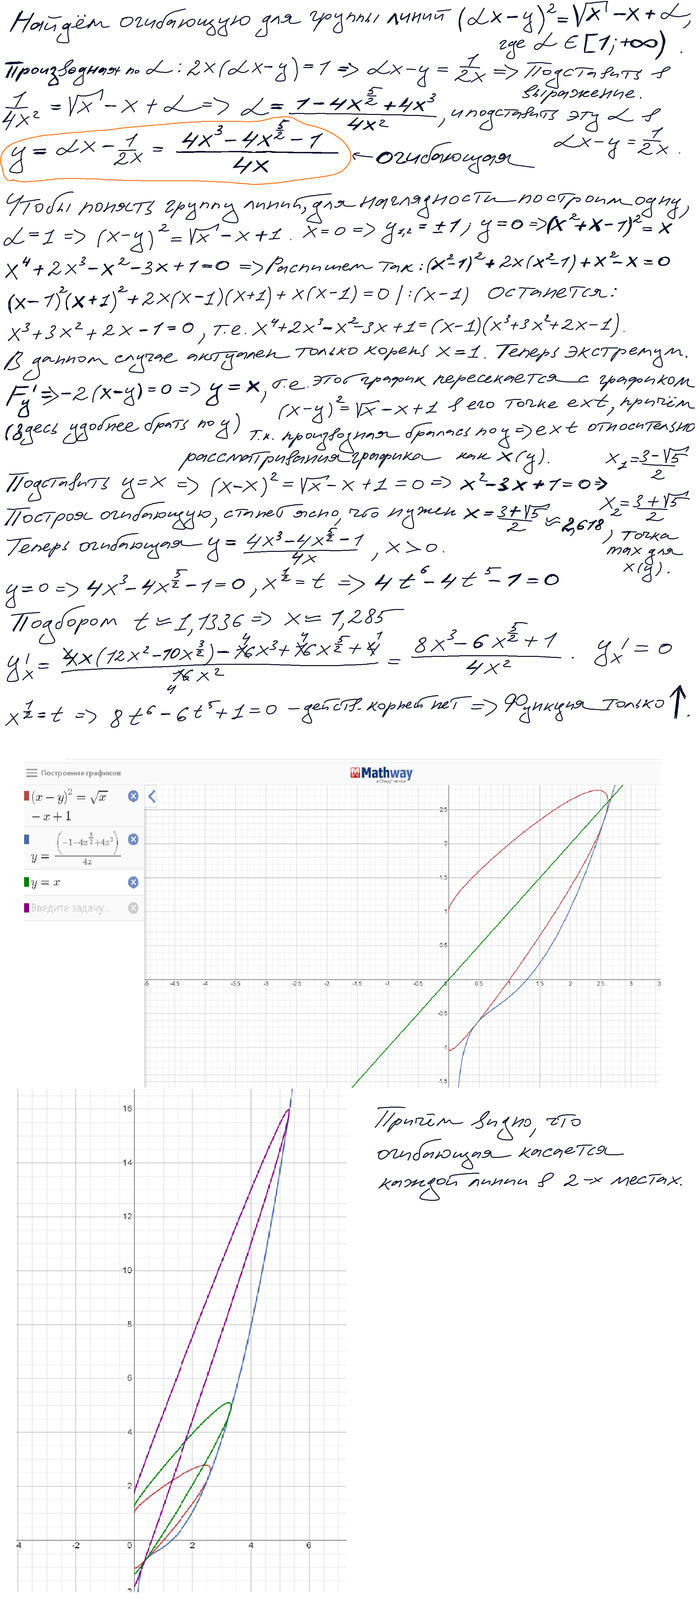 Найдём огибающую для группы линий (αx−y)² = √x − x + α,
где α ∈ [1;+∞).
Производная по α: 2x(αx−y) = 1 => αx−y = 1/2x => Подставить в
выражение.
1/4x² = √x − x + α => α = (1−4x^(5/2)+4x³)/4x², и подставить эту α в
αx−y = 1/2x.
y = αx − 1/2x = (4x³−4x^(5/2)−1)/4x ← огибающая
Чтобы понять группу линий, для наглядности построим одну,
α=1 => (x−y)² = √x − x + 1. x=0 => y₁,₂ = ±1; y=0 => (x²+x−1)² = x
x⁴+2x³−x²−3x+1=0 => Распишем так: (x²−1)²+2x(x²−1)+x²−x=0
(x−1)²(x+1)²+2x(x−1)(x+1)+x(x−1)=0 |:(x−1) Останется:
x³+3x²+2x−1=0, т.е. x⁴+2x³−x²−3x+1=(x−1)(x³+3x²+2x−1).
В данном случае актуален только корень x=1. Теперь экстремум.
F'y => −2(x−y)=0 => y=x, т.е. этот график пересекается с графиком
(здесь удобнее брать по y) (x−y)²=√x−x+1 в его точке ext, причём
т.к. производная бралась по y => ext относительно
рассматривания графика как x(y). x₁ = (3−√5)/2
Подставить y=x => (x−x)² = √x − x + 1 = 0 => x²−3x+1=0 =>
x₂ = (3+√5)/2
Построя огибающую, станет ясно, что нужен x = (3+√5)/2 ≈ 2,618
, точка
max для
x(y).
Теперь огибающая y = (4x³−4x^(5/2)−1)/4x, x>0.
y=0 => 4x³−4x^(5/2)−1=0, x^(1/2)=t => 4t⁶−4t⁵−1=0
Подбором t≈1,1336 => x≈1,285
y'x = (4x(12x²−10x^(3/2))−16x³+16x^(5/2)+4)/16x² = (8x³−6x^(5/2)+1)/4x². y'x = 0
x^(1/2)=t => 8t⁶−6t⁵+1=0 – действ. корней нет => Функция только ↑.
Построение графиков
Mathway
(x − y)² = √x
− x + 1
y = (−1−4x^(5/2)+4x³)/4x
y = x
Введите задачу...
2.5
2
1.5
1
0.5
-5 -4.5 -4 -3.5 -3 -2.5 -2 -1.5 -1 -0.5 0 0.5 1 1.5 2 2.5 3 3.5
-0.5
-1
-1.5
16
14
12
10
8
6
4
2
-4 -2 0 2 4 6
Причём видно, что
огибающая касается
каждой линии в 2-х местах.